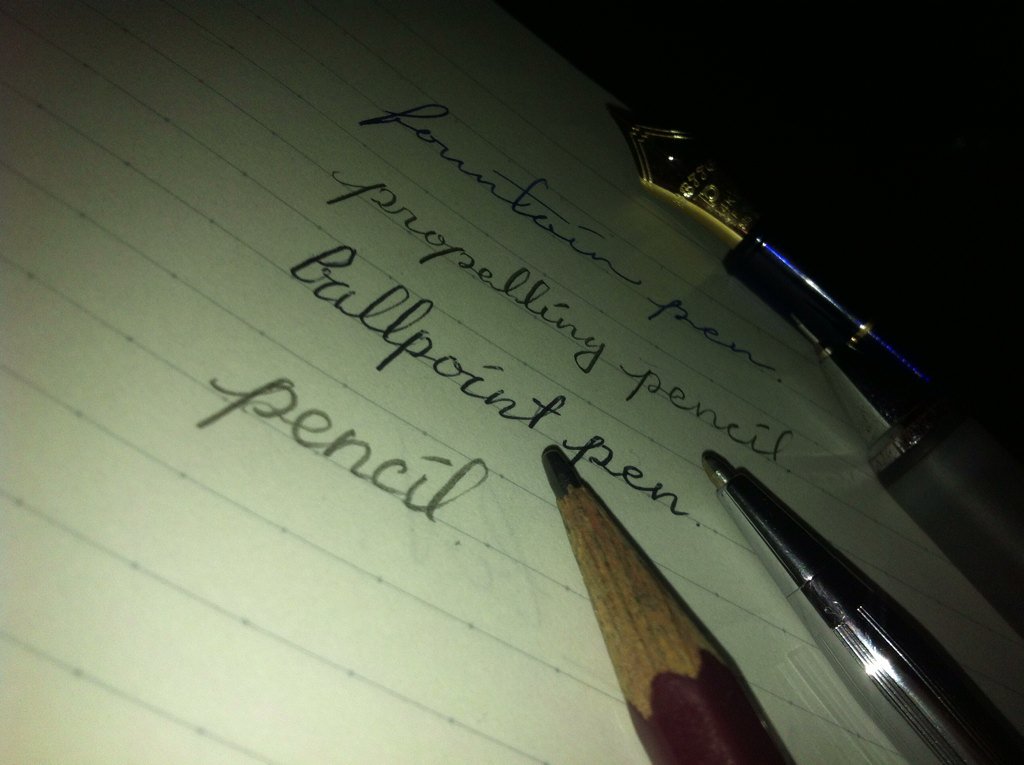 fountain pen.
propelling pencil.
ballpoint pen.
pencil.